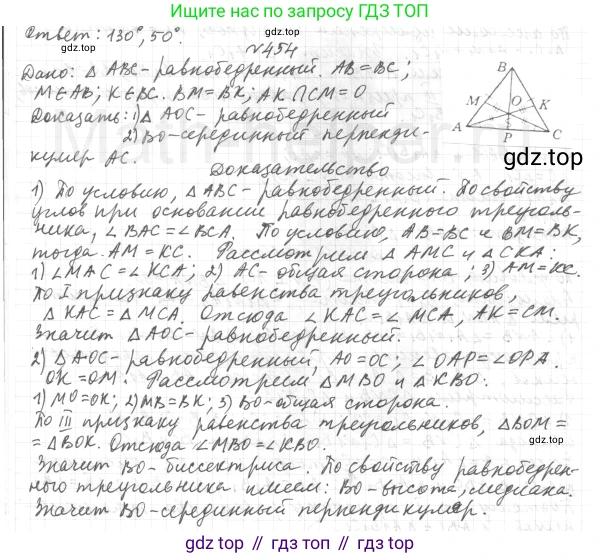 Ищите нас по запросу ГДЗ ТОП
Ответ: 130°, 50°.
gdz.top
№454
Дано: △ABC - равнобедренный. AB=BC;
M∈AB; K∈BC. BM=BK; AK∩CM=O
Доказать: 1) △AOC - равнобедренный
2) BO - серединный перпенди-
куляр AC.
B
M
O
K
A
P
C
gdz.top
Доказательство
1) По условию, △ABC - равнобедренный. По свойству
углов при основании равнобедренного треуголь-
ника, ∠BAC=∠BCA. По условию, AB=BC и BM=BK,
тогда AM=KC. Рассмотрим △AMC и △CKA:
1) ∠MAC=∠KCA; 2) AC - общая сторона; 3) AM=KC.
По I признаку равенства треугольников,
△KAC=△MCA. Отсюда ∠KAC=∠MCA, AK=CM.
Значит △AOC - равнобедренный.
2) △AOC - равнобедренный, AO=OC; ∠OAP=∠OPA.
OK=OM. Рассмотрим △MBO и △KBO:
1) MO=OK; 2) MB=BK; 3) BO - общая сторона.
По III признаку равенства треугольников, △BOM=
=△BOK. Отсюда ∠MBO=∠KBO.
Значит BO - биссектриса. По свойству равнобедрен-
ного треугольника имеем: BO - высота, медиана.
Значит BO - серединный перпендикуляр.
gdz.top // gdz.top // gdz.top // gdz.top